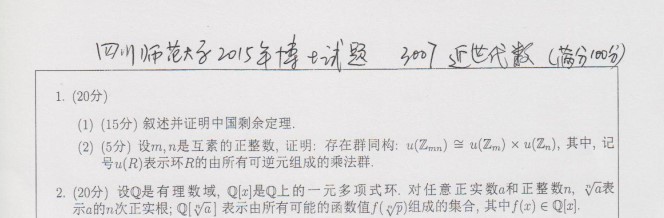 四川师范大学2015年博士试题 3007 近世代数 (满分100分)
1. (20分)
(1) (15分) 叙述并证明中国剩余定理.
(2) (5分) 设m,n是互素的正整数, 证明: 存在群同构: u(ℤmn) ≅ u(ℤm) × u(ℤn), 其中, 记
号u(R)表示环R的由所有可逆元组成的乘法群.
2. (20分) 设ℚ是有理数域, ℚ[x]是ℚ上的一元多项式环. 对任意正实数a和正整数n, ⁿ√a表
示a的n次正实根; ℚ[ⁿ√a] 表示由所有可能的函数值f(ⁿ√p)组成的集合, 其中f(x) ∈ ℚ[x].